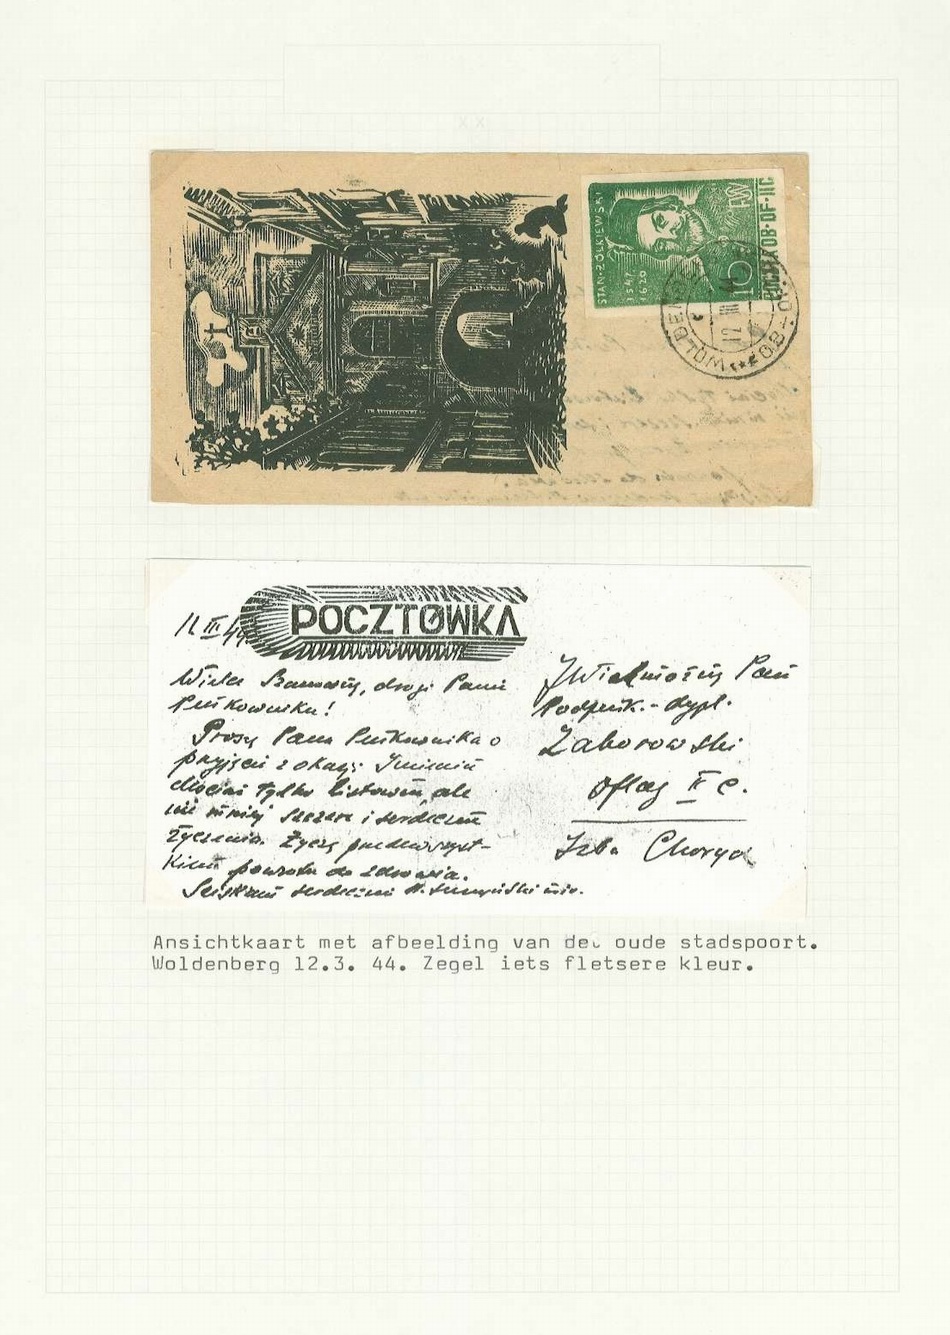 STAN·ŻÓŁKIEWSKI
1547
1620
10
POCZTA OB·OF·IIC
WOLDENBERG
12 III 44
POCZTÓWKA
11 III 44
Wielce Szanowny, drogi Panie
Pułkowniku!
Proszę Pana Pułkownika o
przyjęcie z okazji Imienin
chociaż tylko listownie ale
nie mniej szczere i serdeczne
życzenia. Życzę przedewszyst-
kiem powrotu do zdrowia.
Ściskam serdecznie
JWielmożny Pan
Podpułk.- dypl.
Zaborowski
Oflag II C.
Izba Chorych
Ansichtkaart met afbeelding van de oude stadspoort.
Woldenberg 12.3. 44. Zegel iets fletsere kleur.